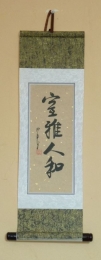 室雅人和